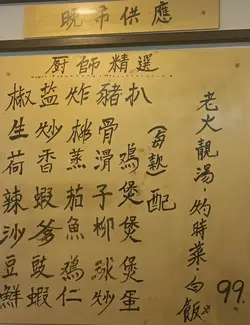 晚市供應
廚師精選
椒盐炸豬扒
生炒排骨
荷香蒸滑鷄
辣蝦茄子煲
沙爹魚柳煲
豆豉鷄球煲
鮮蝦仁炒蛋
(每款)配
老火靚湯·灼時菜·白飯
99